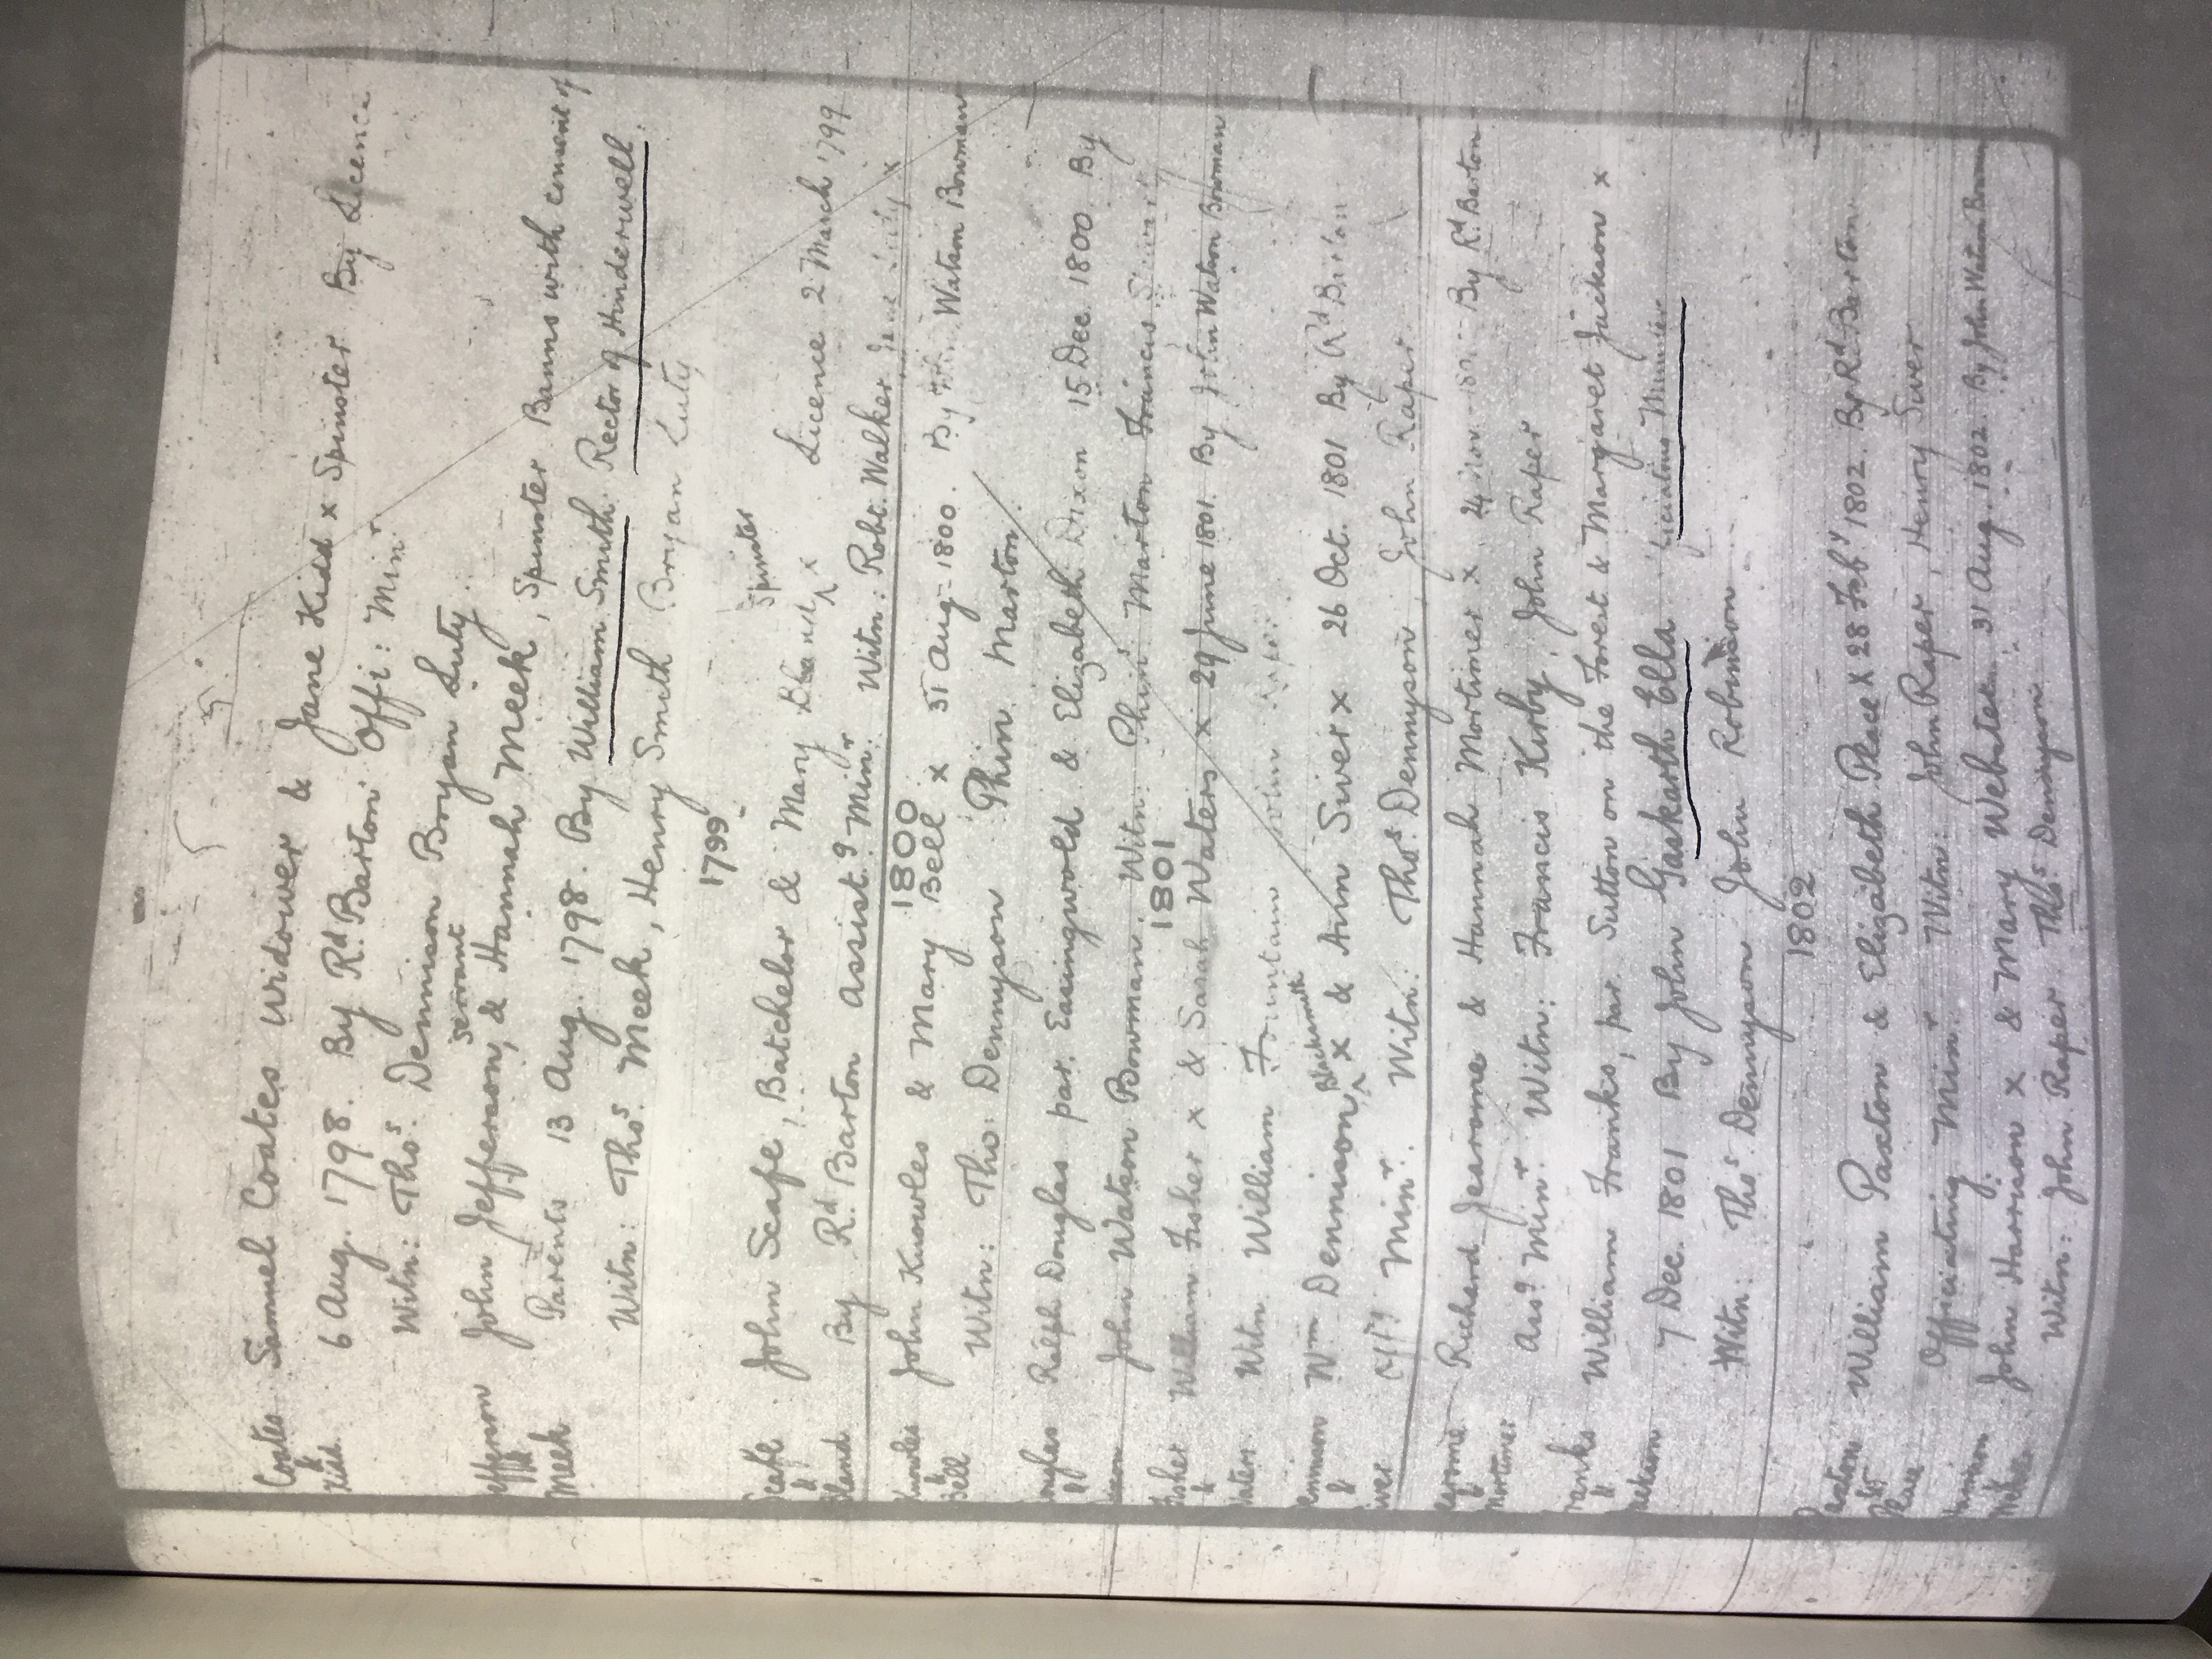 Coates & Kidd
Samuel Coates Widower & Jane Kidd x Spinster By Licence
6 Aug. 1798. By Rd Barton Offi: Minr
Witn: Thos. Dennison Bryan Luty.
Jefferson & Meek
servant
John Jefferson, & Hannah Meek, Spinster Banns with consent of
Parents 13 Aug. 1798. By William Smith Rector of Hinderwell.
Witn: Thos. Meek, Henry Smith Bryan Luty
1799
spinster
John Scafe, Batchelor & Mary x Licence 2 March 1799
By Rd Barton Assist. Minr. Witn: Robt. Walker
1800
Knowles & Bell
John Knowles & Mary Bell x 31 Aug 1800. By John Watson Bowman
Witn: Tho: Dennyson Phin Marton
Ralph Douglas par. Easingwold & Elizabeth Dixon 15 Dec. 1800. By
John Watson Bowman. Witn: Phin: Marton Francis
1801
Fisher &
William Fisher x & Sarah Waters x 29 June 1801. By John Watson Bowman
Witn. William Fountain John
Blacksmith
Wm Dennison x & Ann Siver x 26 Oct. 1801 By Rd Barton
Minr. Witn: Thos. Dennyson John Raper
Richard Jearome & Hannah Mortimer x 24 Nov. By Rd Barton
Ass? Minr Witn: Francis Kirby, John Raper
William Franks, par. Sutton on the Forest & Margaret Jackson x
7 Dec. 1801 By John Gaskarth Ella Minister
Witn: Thos Dennyson John Robinson
1802
William Paxton & Elizabeth Place x 28 Feby 1802. By Rd. Barton
Officiating Minr Witn: John Raper, Henry Siver
John Harrison x & Mary Webster 31 Aug. 1802. By John Watson
Witn: John Raper Thos Dennyson